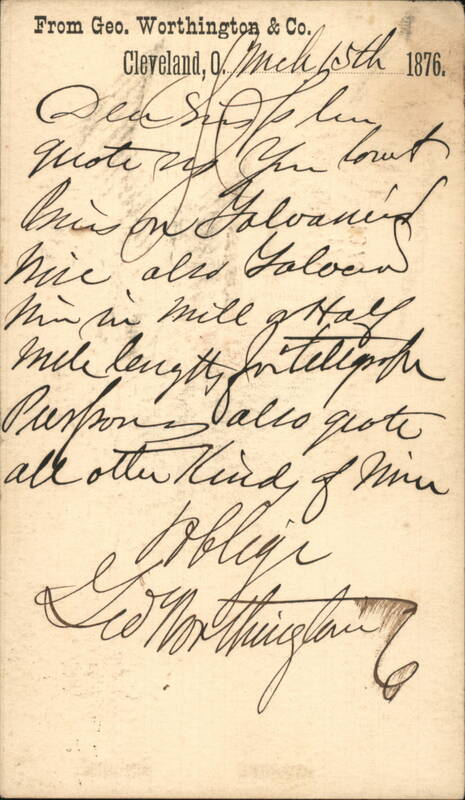 From Geo. Worthington & Co.
Cleveland, O. Mch 15th 1876.
Dear Sirs Please
quote us Your lowest
Prices on Galvanized
Wire also Galvan
Wire in Mile & Half
Mile lengths for Telegraph
Purposes also quote
all other Kinds of Wire
& Oblige
Geo Worthington & Co